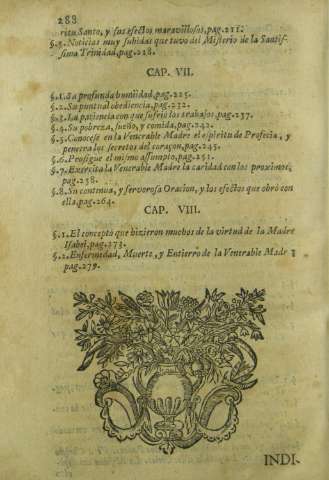 288
ritu Santo, y sus efectos maravillosos, pag. 211.
§. 5. Noticias muy subidas que tuvo del Misterio de la Santis-
sima Trinidad, pag. 218.
CAP. VII.
§. 1. Sa profunda humildad, pag. 225.
§. 2. Su puntual obediencia, pag. 232.
§. 3. La paciencia con que sufriò los trabajos, pag. 237.
§. 4. Su pobreza, sueño, y comida, pag. 242.
§. 5. Conocese en la Venerable Madre el espiritu de Profecia, y
penetra los secretos del coraçon, pag. 245.
§. 6. Prosigue el mismo assumpto, pag. 251.
§. 7. Exercita la Venerable Madre la caridad con los proximos,
pag. 258.
§. 8. Su continua, y fervorosa Oracion, y los efectos que obrò con
ella, pag. 264.
CAP. VIII.
§. 1. El concepto que hizieron muchos de la virtud de la Madre
Isabel, pag. 273.
§. 2. Enfermedad, Muerte, y Entierro de la Venerable Madre
pag. 279.
INDI-